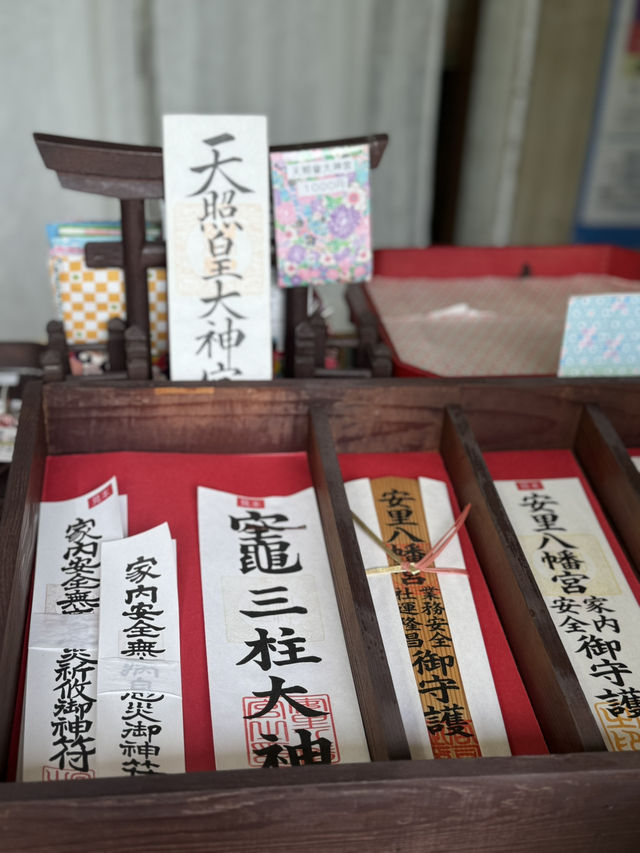 天照皇大神宮
天照皇大神宮
1000円
見本
家内安全無
災祈攸御神符
家内安全無病息災御神符
見本
竈三柱大神
安里八幡宮
業務安全
社運隆昌
御守護
見本
安里八幡宮
家内
安全
御守護